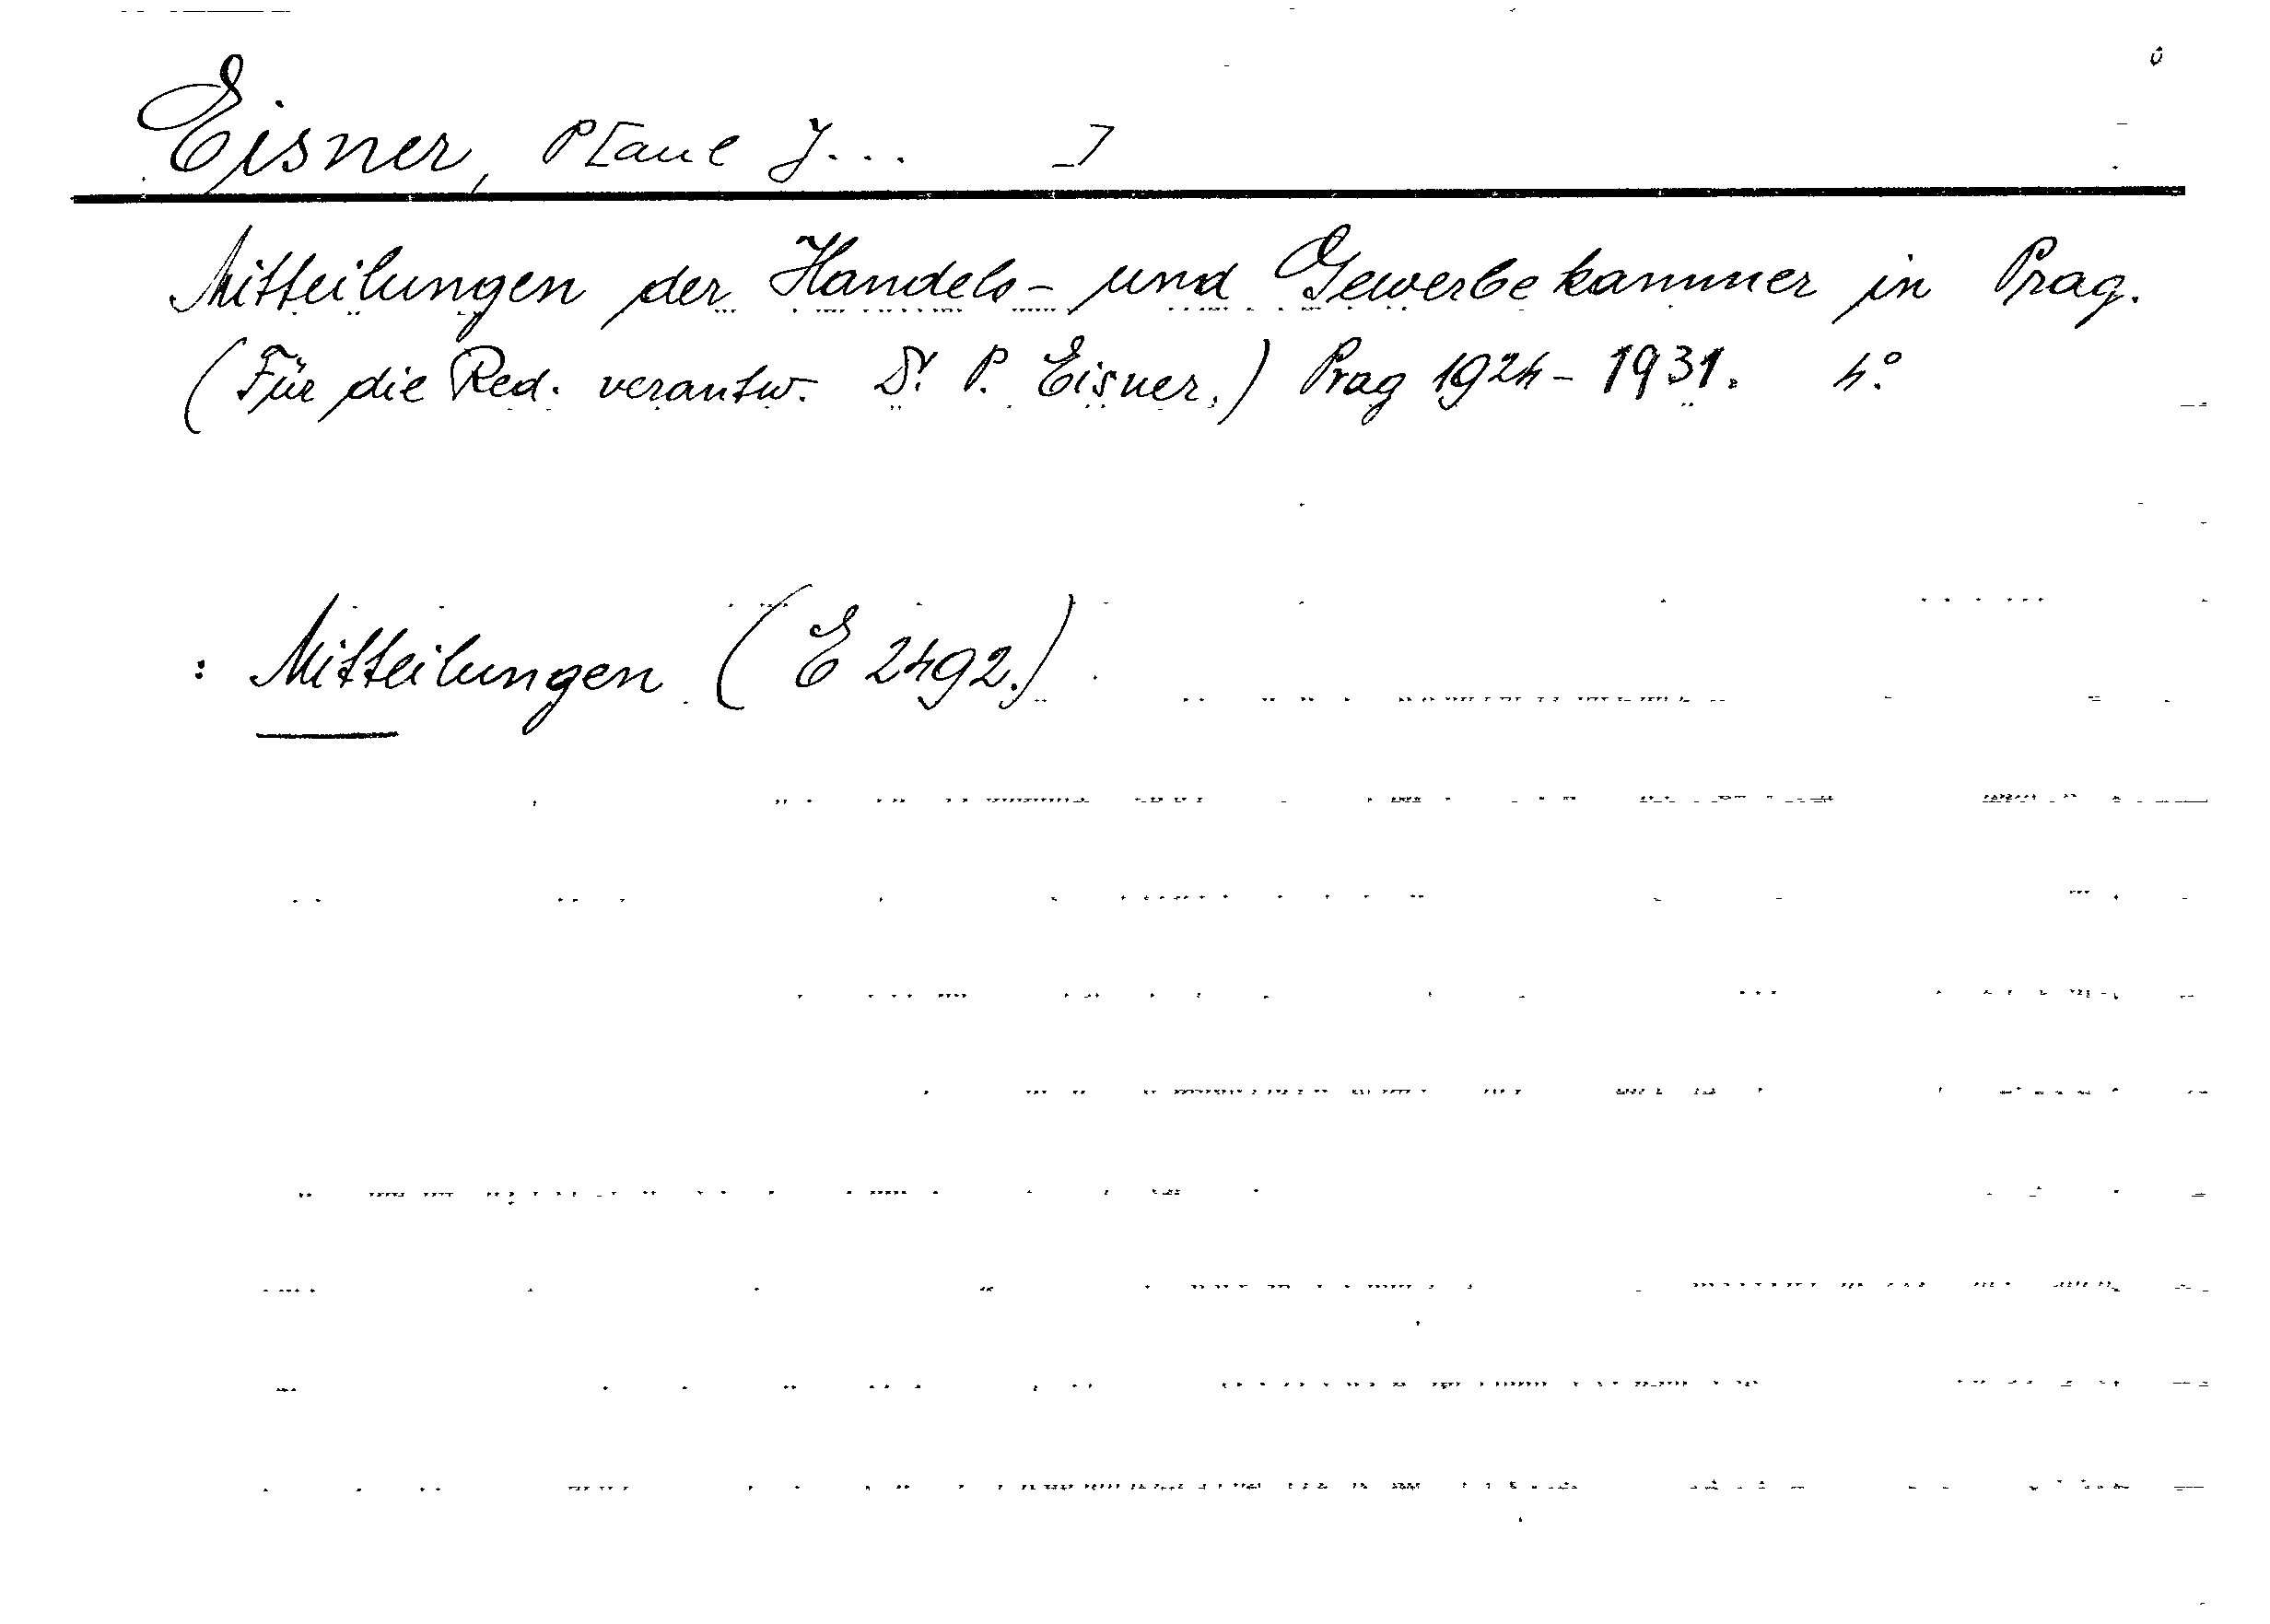 Eisner, P[aul J... ]
Mitteilungen der Handels- und Gewerbekammer in Prag.
(Für die Red. verantw. Dr. P. Eisner.) Prag 1924-1931. 4°.
: Mitteilungen (E 2492.)